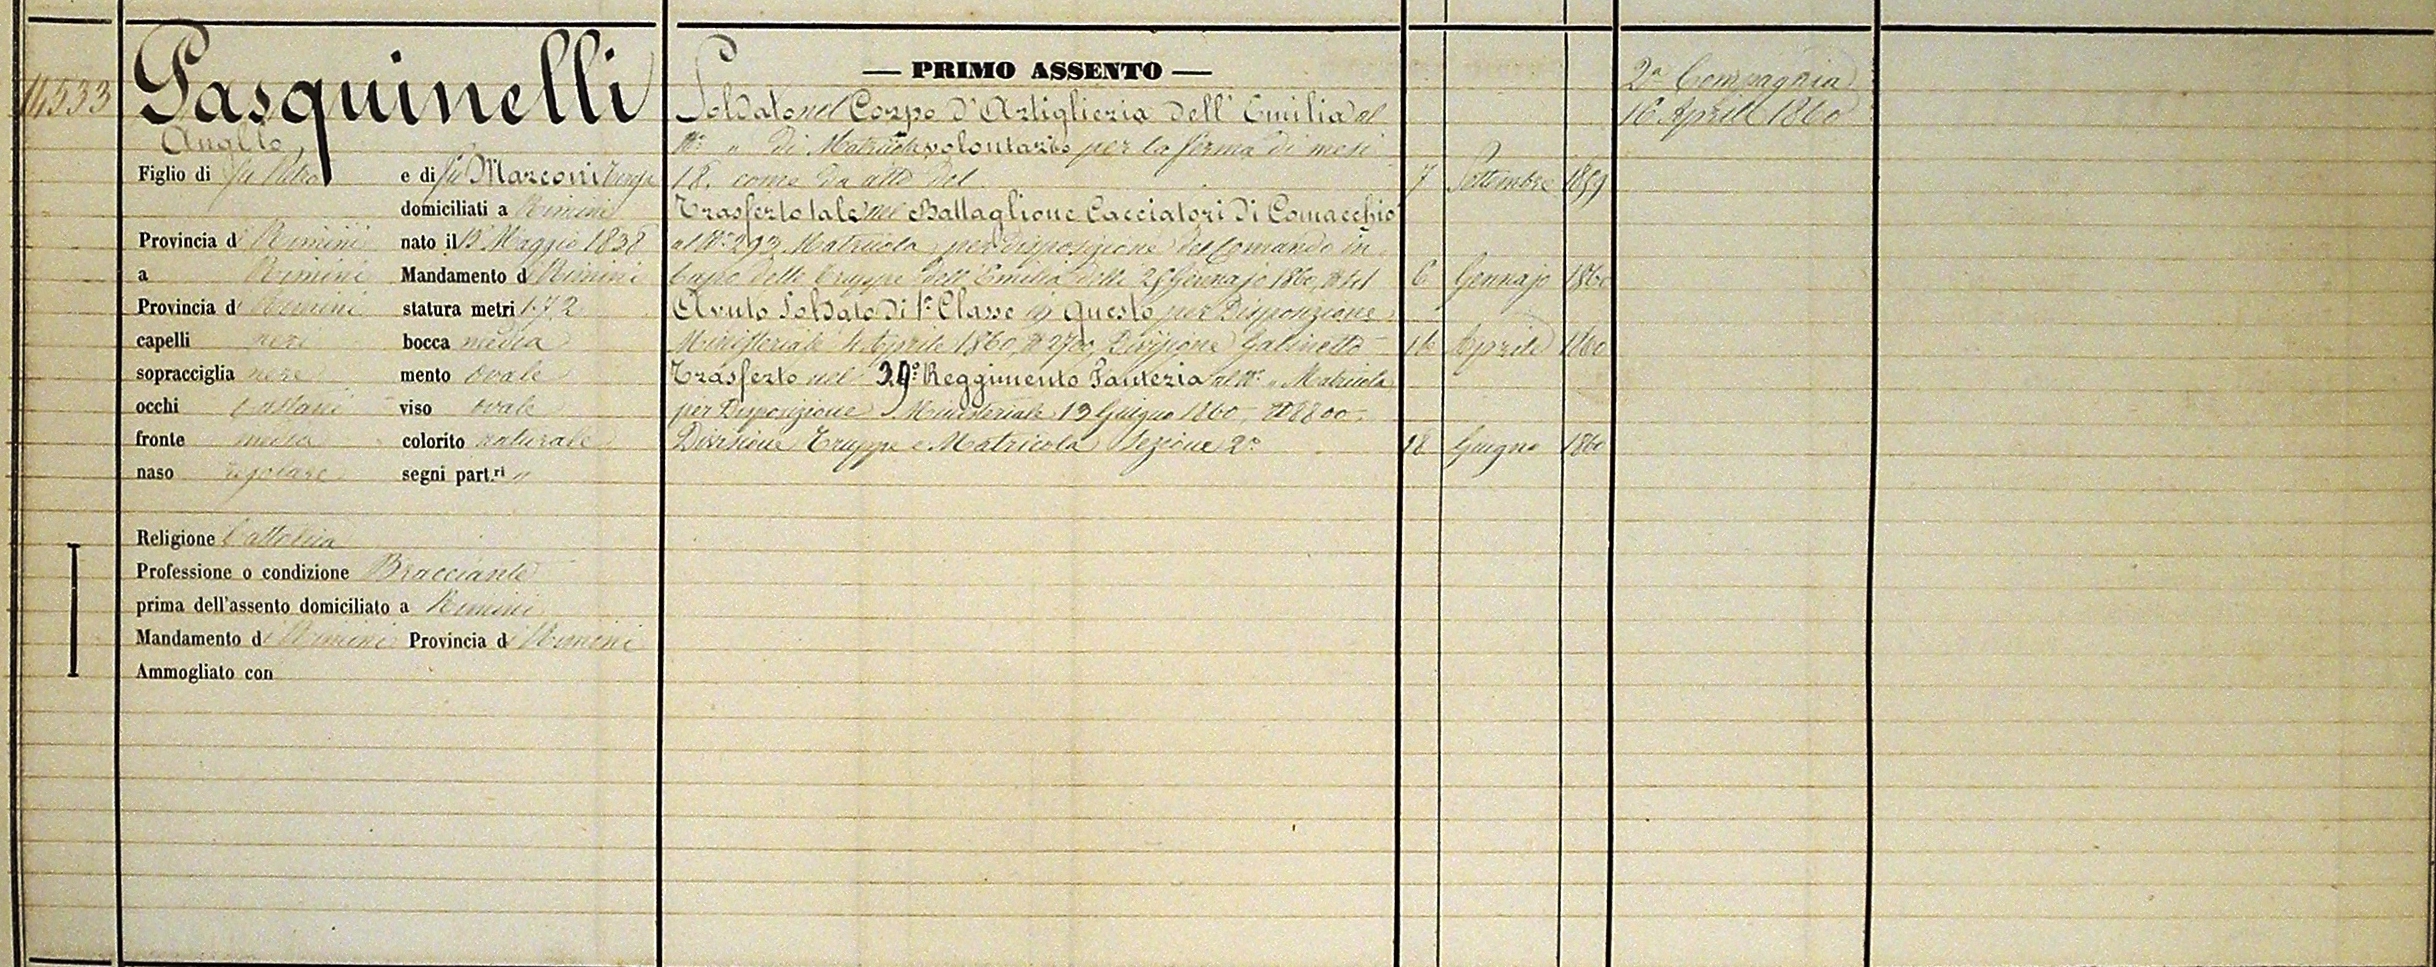 14533
Pasquinelli
Angelo
Figlio di fu Pietro e di fu Marconi Teresa
domiciliati a Rimini
Provincia di Rimini nato il 13 Maggio 1838
a Rimini Mandamento di Rimini
Provincia di Rimini statura metri 1.72
capelli neri bocca media
sopracciglia nere mento ovale
occhi castani viso ovale
fronte media colorito naturale
naso regolare segni part.ri "
Religione Cattolica
Professione o condizione Bracciante
prima dell'assento domiciliato a Rimini
Mandamento di Rimini Provincia di Rimini
Ammogliato con
— PRIMO ASSENTO —
Soldato nel Corpo d'Artiglieria dell'Emilia al
N.° " di Matricola volontario per la ferma di mesi
18. come da atto del 7 Settembre 1859
Trasferto tale nel Battaglione Cacciatori di Comacchio
al N.° 293 Matricola per disposizione del Comando in
Capo delle Truppe dell'Emilia delli 25 Gennajo 1860, N. 6 Gennajo 1860
Avuto Soldato di 1.a Classe in questo per Disposizione
Ministeriale 4 Aprile 1860, N. 2700, Divisione Gabinetto 16 Aprile 1860
Trasferto nel 39.° Reggimento Fanteria al N.° " Matricola
per Disposizione Ministeriale 13 Giugno 1860 - N. 8800 -
Divisione Truppe e Matricola Sezione 2.a 18 Giugno 1860
2.a Compagnia
16 Aprile 1860